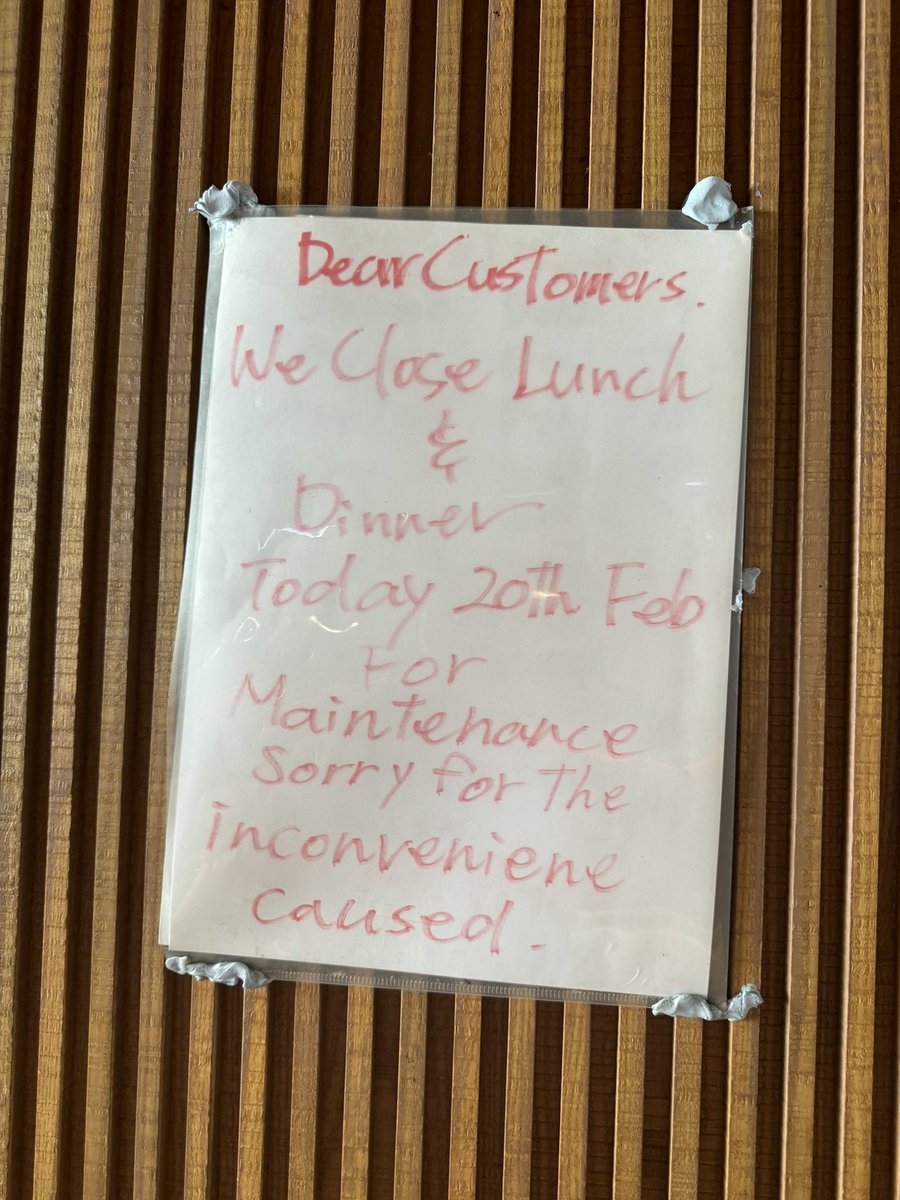 Dear Customers.
We Close Lunch
&
Dinner
Today 20th Feb
For
Maintenance
Sorry for The
inconveniene
caused.